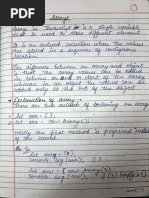 Arrays
Array in Javascript is a single variable
that is used to store different element
It is an ordered collection where the values
are stored in a sequence of contiguous
location.
The difference between an array and object
is that the array values can be added
between or start of the array
whereas in an object the value can be added
only at the end of the object
Declaration of array :-
There are two method of declaring an array
1. let arr = [];
2. let arr = new Array();
Mostly the first method is preferred instead of
the second.
Eg :-
let array = [5];
console.log(arr); // 5
let arr = new Array();
console.log(arr);